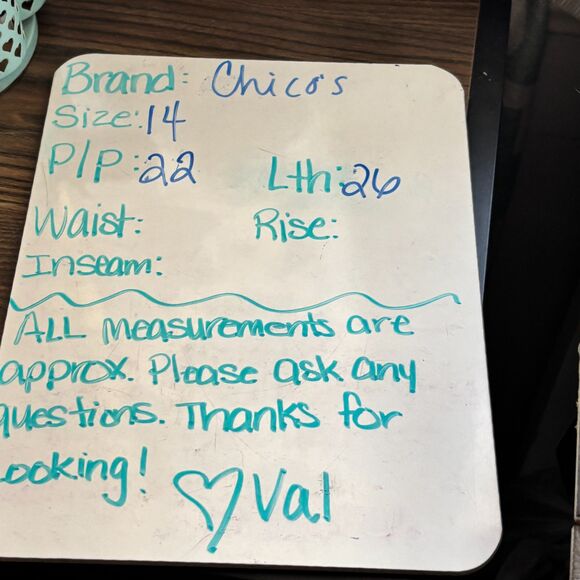 Brand: Chico's
Size: 14
P/P: 22 Lth: 26
Waist: Rise:
Inseam:
ALL measurements are
approx. Please ask any
questions. Thanks for
Looking!
♡ Val